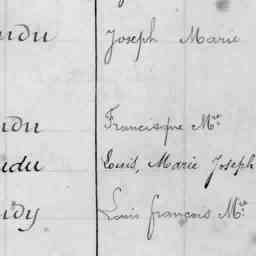 Joseph Marie
Francisque Mie
Louis, Marie Joseph
Louis françois Mie